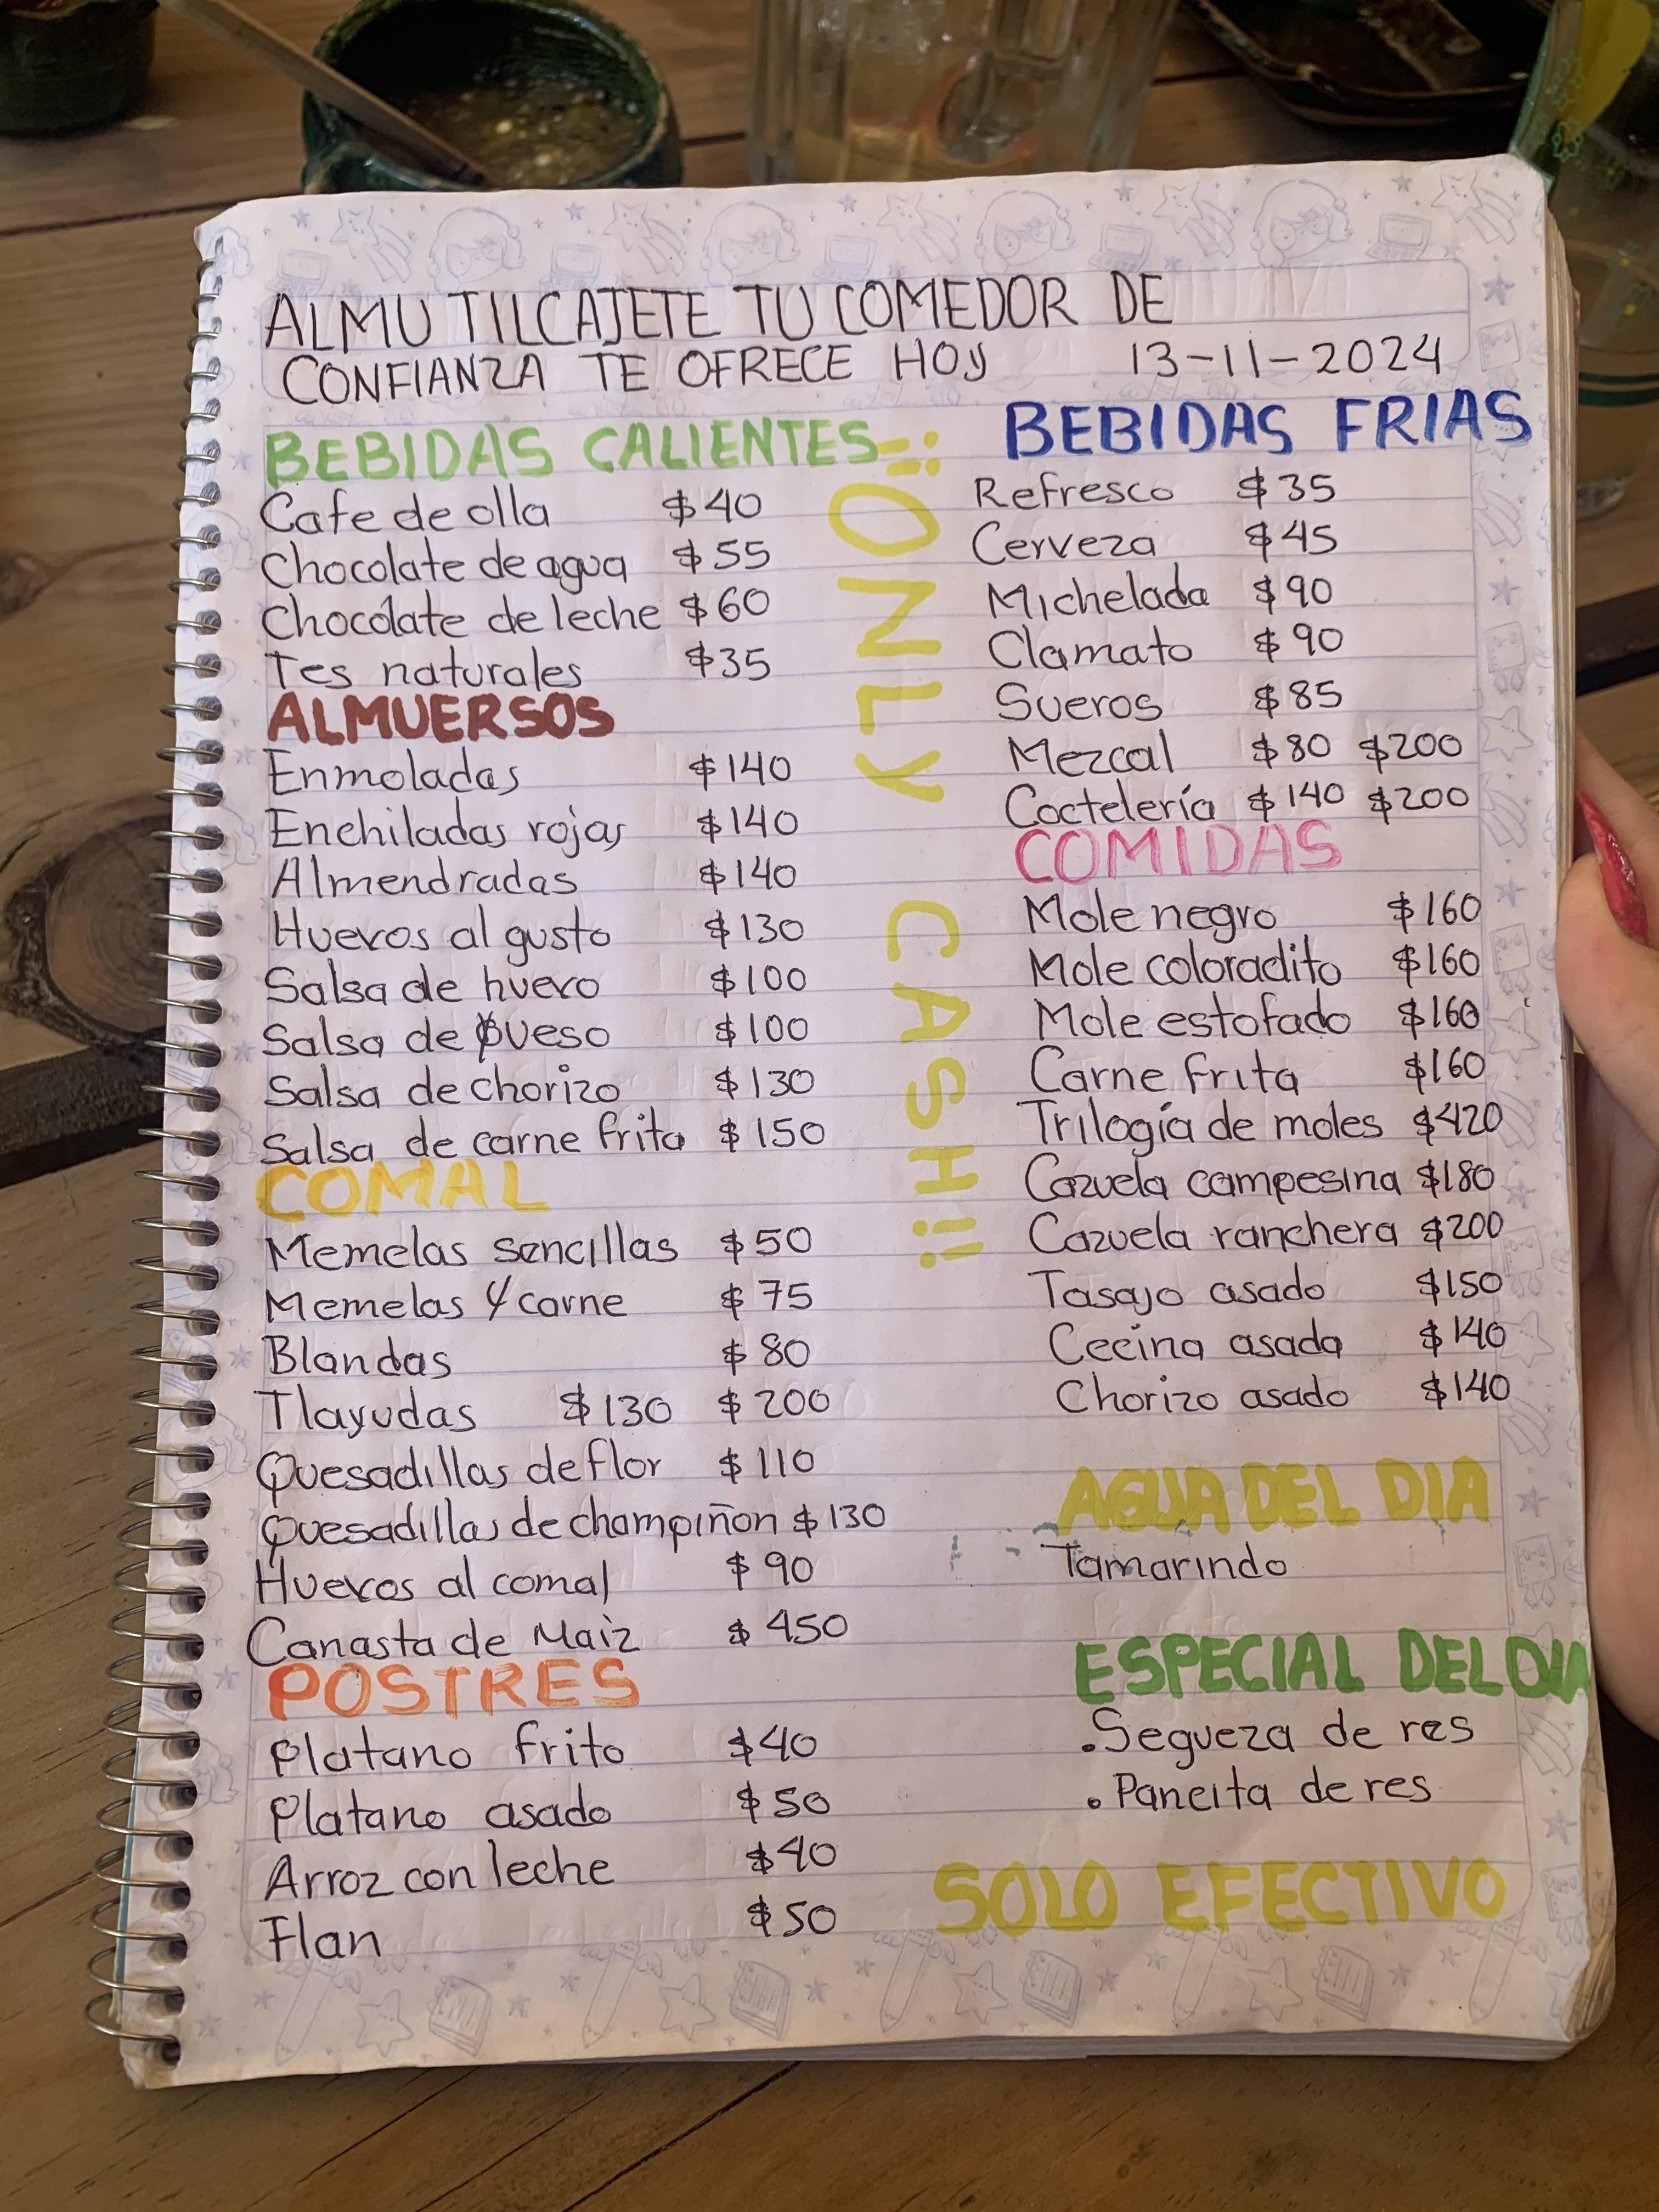 ALMU TILCAJETE TU COMEDOR DE
CONFIANZA TE OFRECE HOY 13-11-2024
BEBIDAS CALIENTES
Cafe de olla $40
Chocolate de agua $55
Chocolate de leche $60
Tes naturales $35
ALMUERSOS
Enmoladas $140
Enchiladas rojas $140
Almendradas $140
Huevos al gusto $130
Salsa de huevo $100
Salsa de queso $100
Salsa de chorizo $130
Salsa de carne frita $150
COMAL
Memelas sencillas $50
Memelas y carne $75
Blandas $80
Tlayudas $130 $200
Quesadillas de flor $110
Quesadillas de champiñon $130
Huevos al comal $90
Canasta de Maiz $450
POSTRES
Platano frito $40
Platano asado $50
Arroz con leche $40
Flan $50
¡¡ONLY CASH!!
BEBIDAS FRIAS
Refresco $35
Cerveza $45
Michelada $90
Clamato $90
Sueros $85
Mezcal $80 $200
Coctelería $140 $200
COMIDAS
Mole negro $160
Mole coloradito $160
Mole estofado $160
Carne frita $160
Trilogía de moles $420
Cazuela campesina $180
Cazuela ranchera $200
Tasajo asado $150
Cecina asada $140
Chorizo asado $140
AGUA DEL DIA
Tamarindo
ESPECIAL DEL DIA
.Segueza de res
.Pancita de res
SOLO EFECTIVO